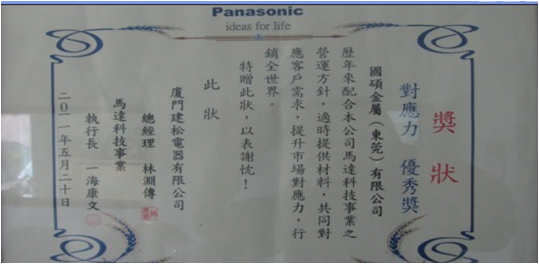 Panasonic
ideas for life
獎狀
對應力 優秀獎
國碩金屬（東莞）有限公司
歷年來配合本公司馬達科技事業之
營運方針，適時提供材料，共同對
應客戶需求，提升市場對應力，行
銷全世界。
特贈此狀，以表謝忱！
此狀
廈門建松電器有限公司
總經理 林淵傳
馬達科技事業
執行長 一海康文
二〇一一年五月二十日